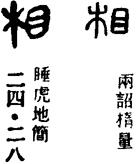 相
兩詔楕量
相
睡虎地簡
二四·二八